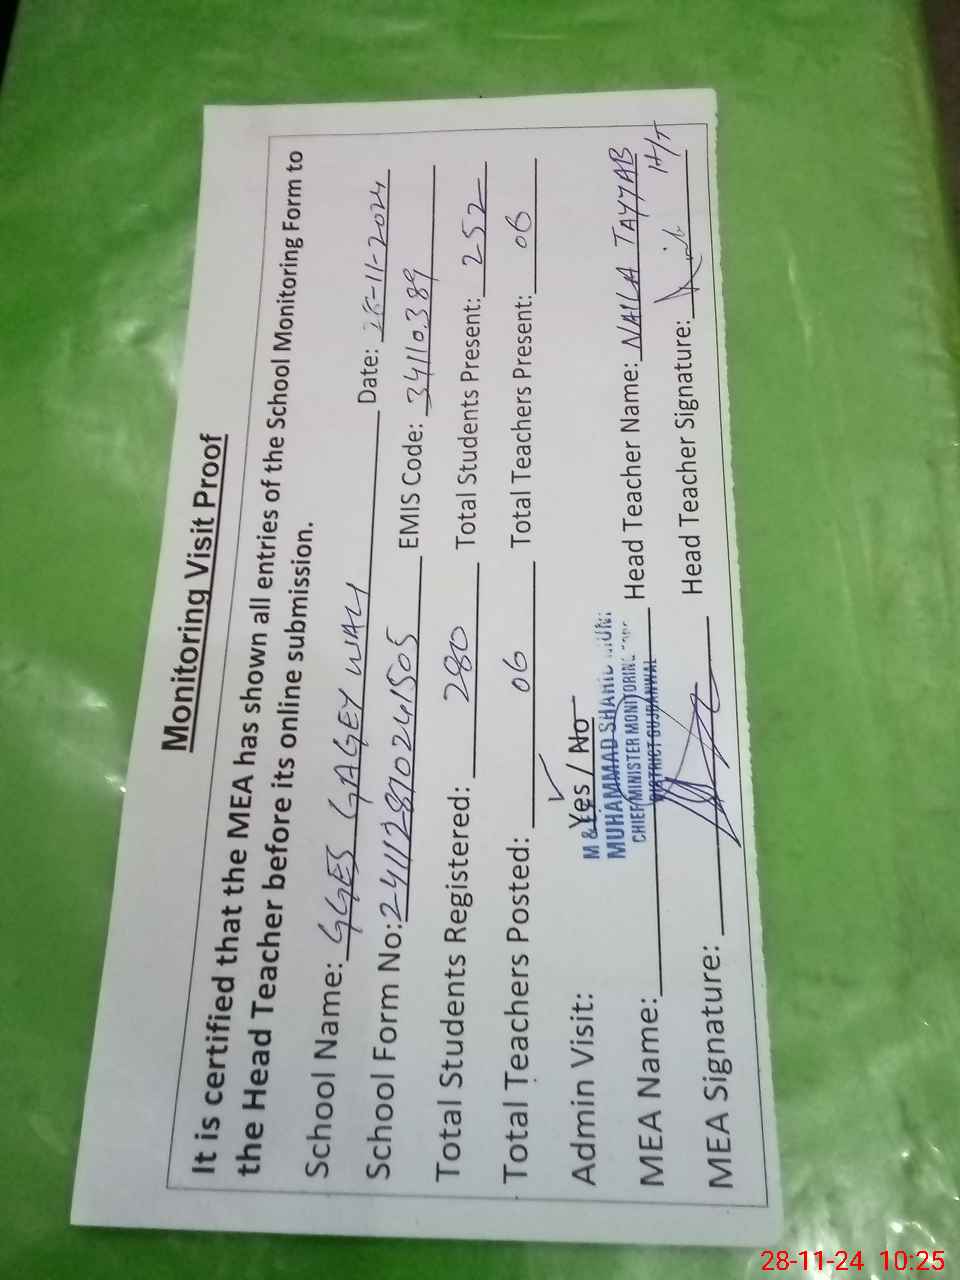 Monitoring Visit Proof
It is certified that the MEA has shown all entries of the School Monitoring Form to
the Head Teacher before its online submission.
School Name: GGES GAGEY WALI Date: 28-11-2024
School Form No: 24112870241505 EMIS Code: 34110389
Total Students Registered: 280 Total Students Present: 252
Total Teachers Posted: 06 Total Teachers Present: 06
Admin Visit: Yes / No
M &
MUHAMMAD SHAHID
CHIEF MINISTER MONITORING
DISTRICT GUJRANWAL
MEA Name: Head Teacher Name: NAILA TAYYAB
MEA Signature: Head Teacher Signature: H/T
28-11-24 10:25